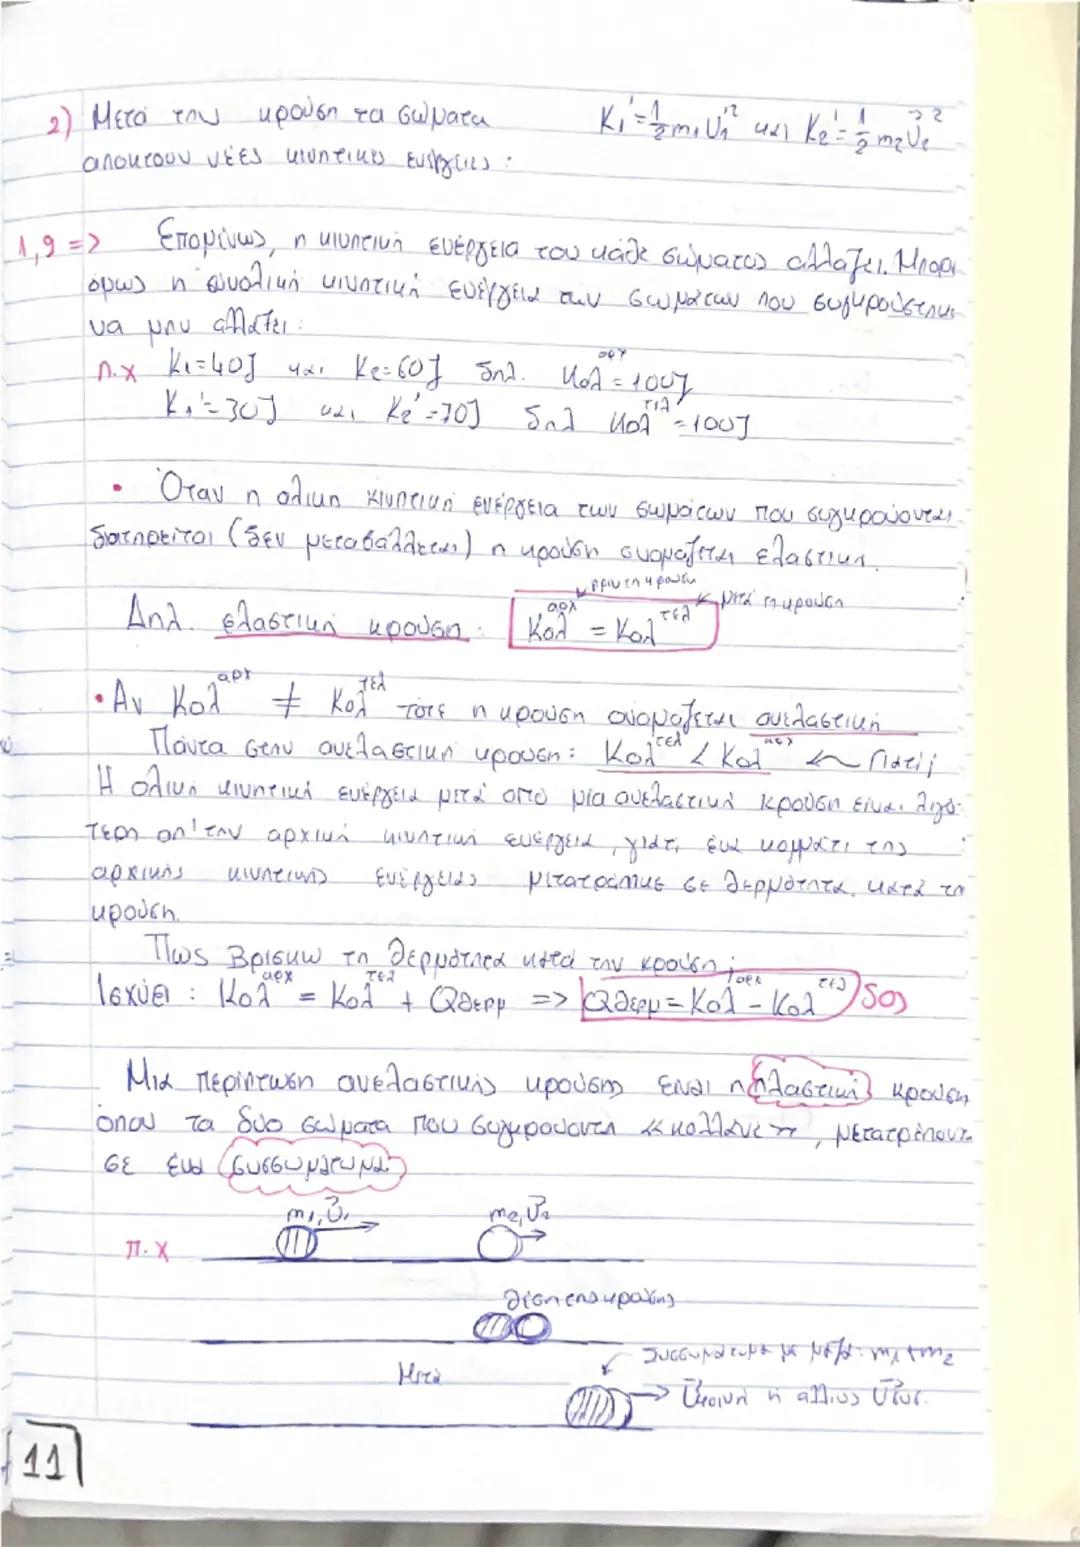 2) Μετά την κρούση τα σώματα K₁'=½m₁U₁'² και K₂'=½m₂U₂'²
αποκτουν νέες κινητικές ενέργειες:
1,2 => Επομένως, η κινητική ενέργεια του κάθε σώματος αλλάζει. Μπορεί
όμως η συνολική κινητική ενέργεια των σωμάτων που συγκρούστηκαν
να μην αλλάζει:
π.χ K₁=40J και K₂=60J δηλ. Κολ^αρχ = 100J
K₁'=30J και K₂'=70J δηλ Κολ^τελ = 100J
• Όταν η ολικη κινητική ενέργεια των σωμάτων που συγκρούονται
διατηρείται (δεν μεταβάλλεται) η κρούση ονομάζεται ελαστική.
πριν τη κρουση
μετά τη κρουση
Δηλ. ελαστική κρούση: Κολ^αρχ = Κολ^τελ
• Αν Κολ^αρχ ≠ Κολ^τελ τότε η κρούση ονομάζεται ανελαστική
Πάντα στην ανελαστική κρούση: Κολ^τελ < Κολ^αρχ ← Γιατί;
Η ολική κινητική ενέργεια μετά από μία ανελαστική κρούση είναι λιγό-
τερη απ' την αρχική κινητική ενέργεια, γιατί ένα κομμάτι της
αρχικής κινητικής ενέργειας μετατράπηκε σε θερμότητα κατά τη
κρούση.
Πως βρίσκω τη θερμότητα κατά την κρούση;
Ισχύει: Κολ^αρχ = Κολ^τελ + Qθερμ => Qθερμ = Κολ^αρχ - Κολ^τελ SOS
Μια περίπτωση ανελαστικής κρούσης είναι η πλαστική κρούση
όπου τα δύο σώματα που συγκρούονται «κολλάνε», μετατρέπονται
σε ένα συσσωμάτωμα
m₁,U₁ m₂,U₂
π.χ
θέση της κρούσης
Συσσωμάτωμα με μάζα: m₁+m₂
Μετά
Uκοινή ή αλλιώς Uσυσ.
11